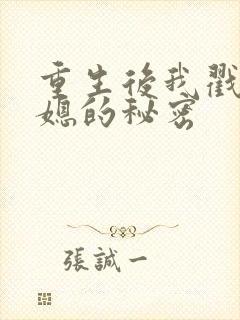 重生後我戳
媳的秘密
張誠一